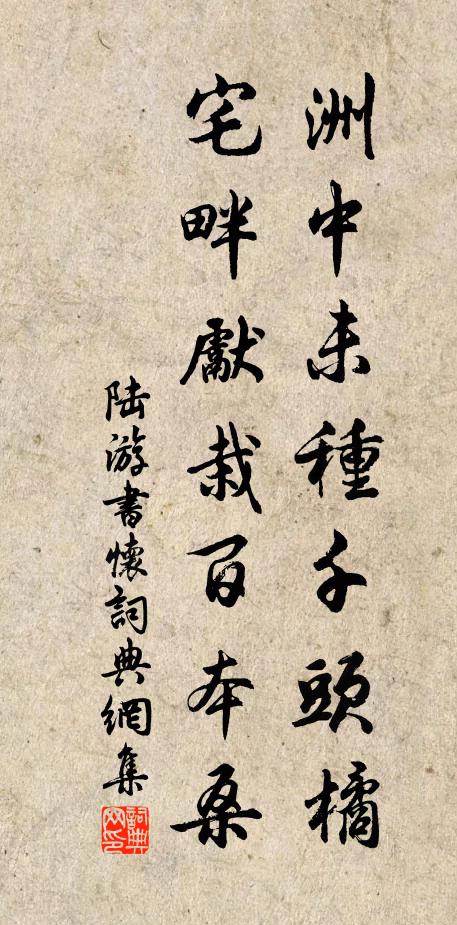 洲中未種千頭橘
宅畔獻栽百本桑
陆游書懷詞典網集
詞典网印